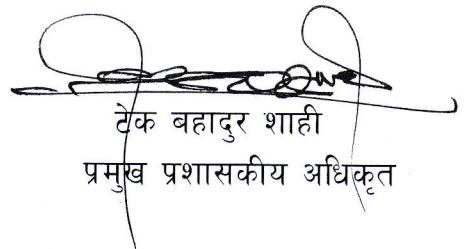 टेक बहादुर शाही
प्रमुख प्रशासकीय अधिकृत